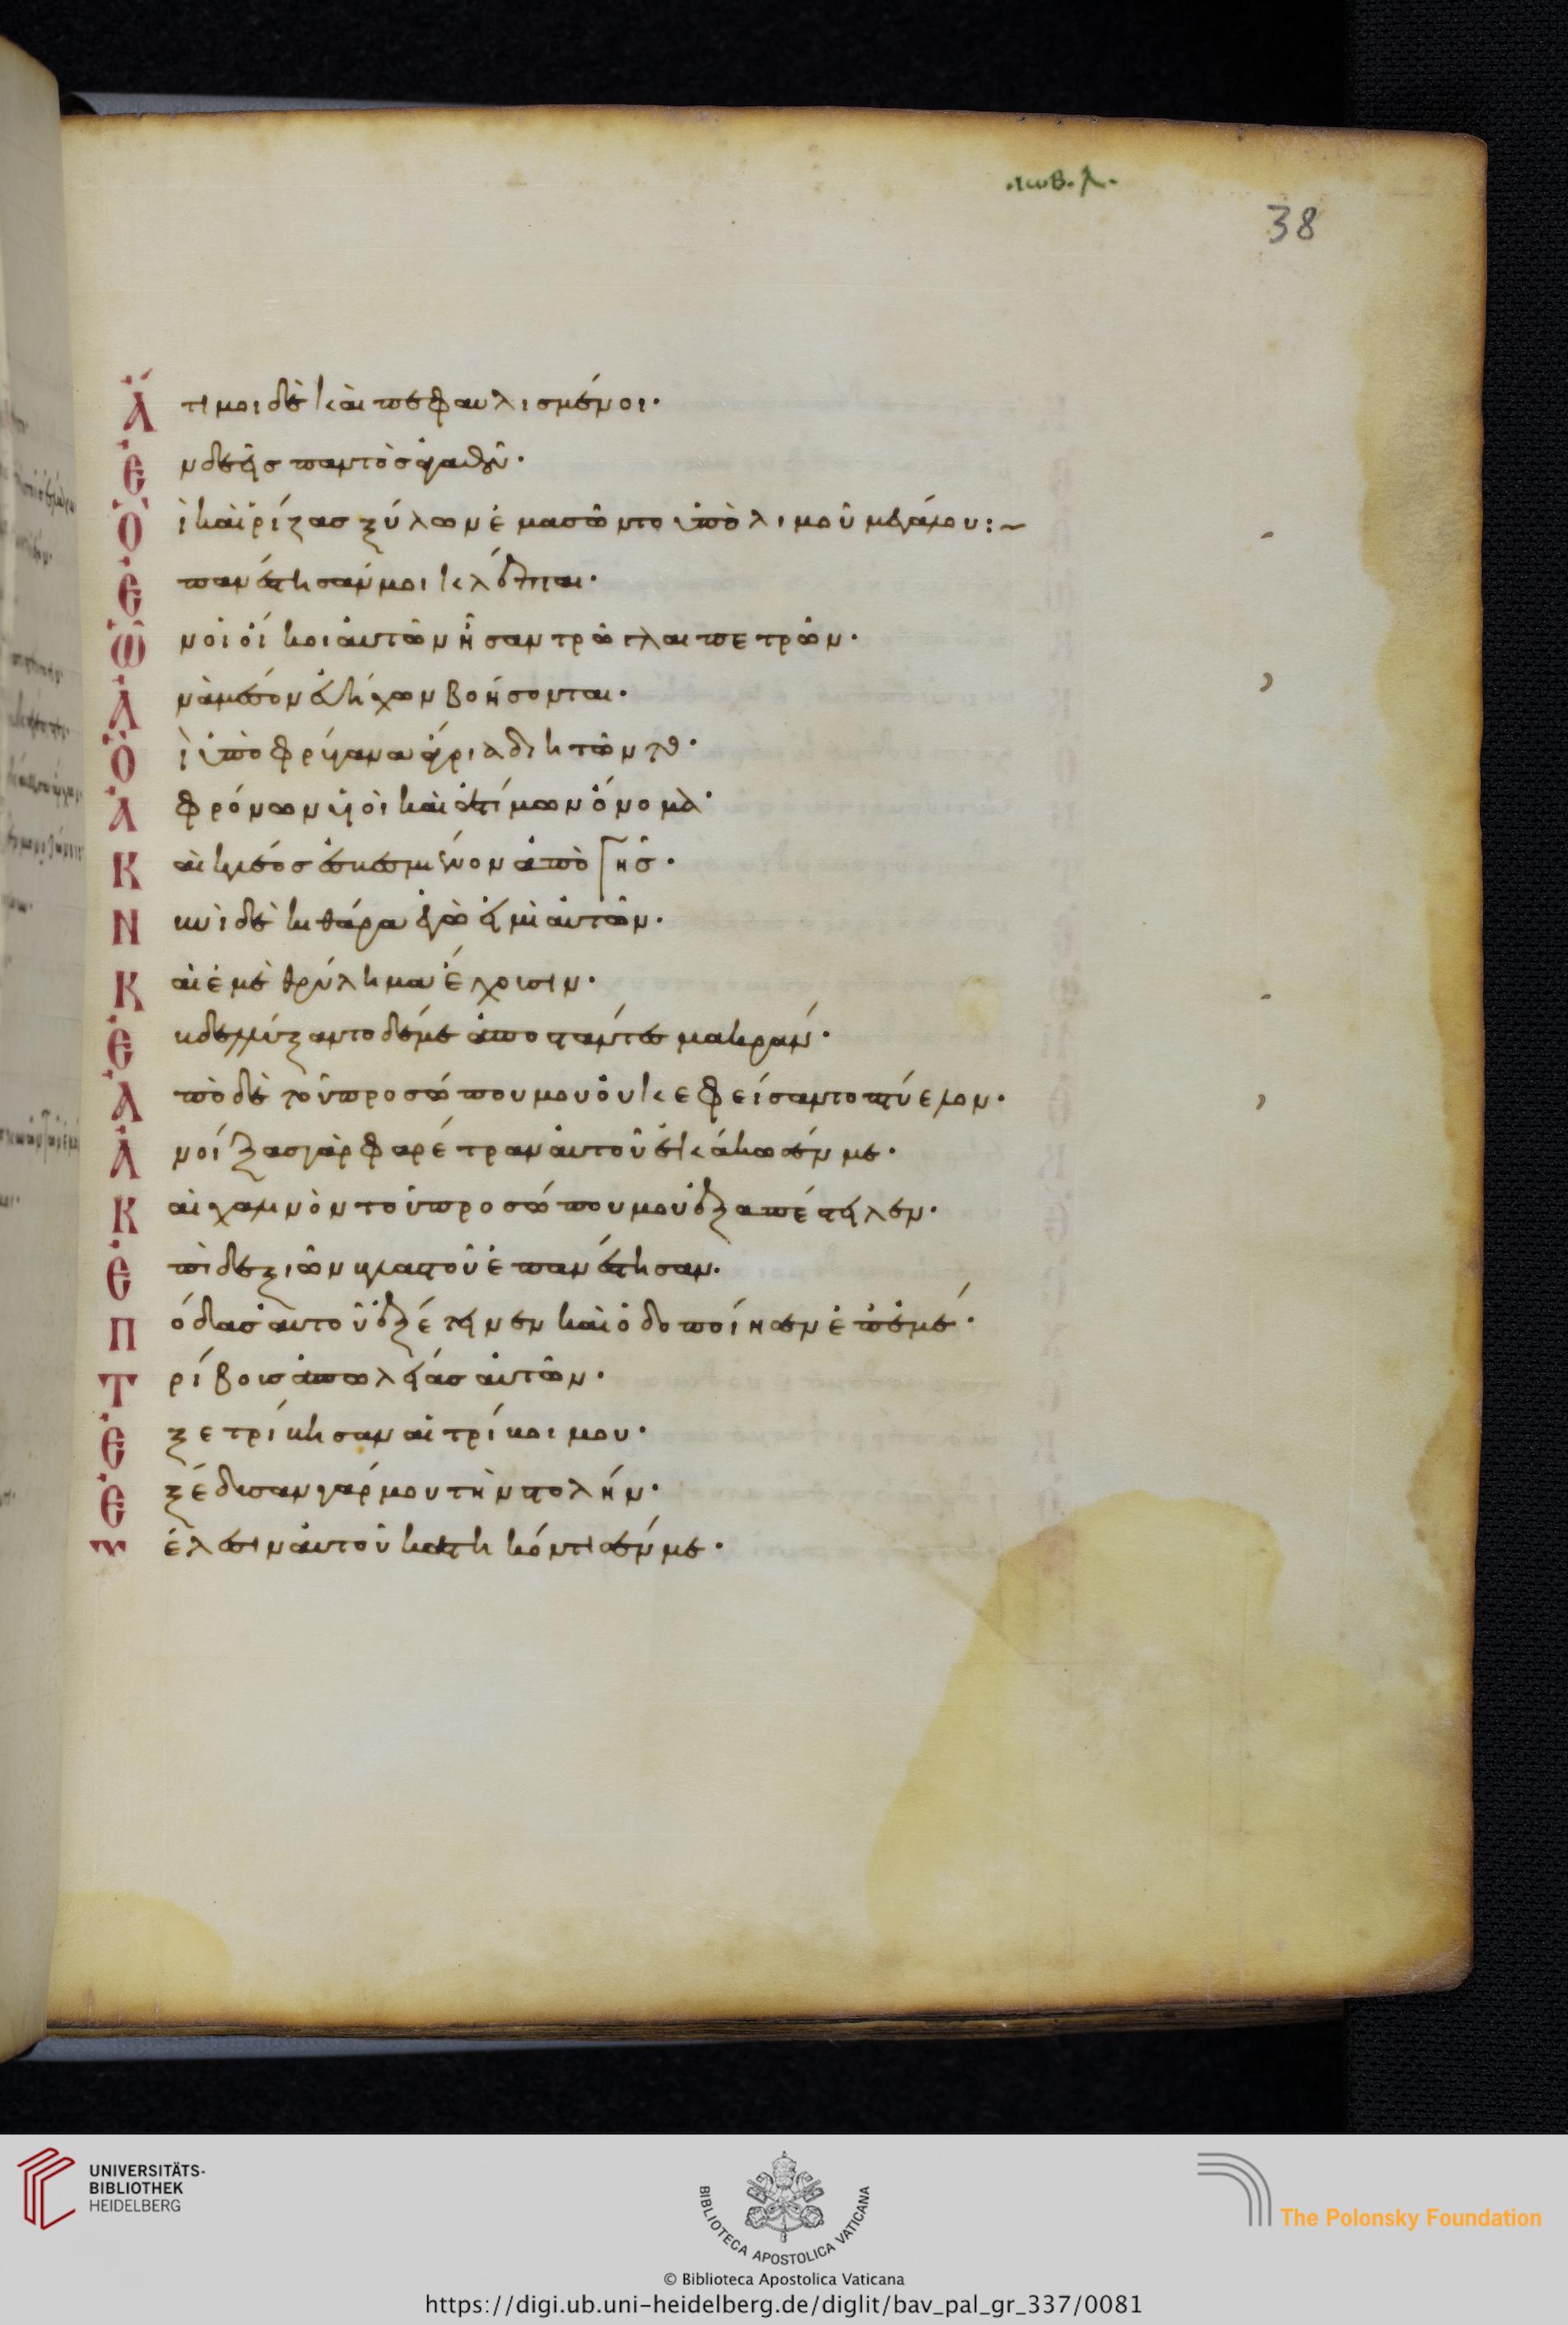 ·ιωβ· λ·
38
Ἄτιμοι δὲ καὶ πεφαυλισμένοι·
Ἐνδεεῖς παντὸς ἀγαθοῦ·
Οἳ καὶ ῥίζας ξύλων ἐμασῶντο ὑπὸ λιμοῦ μεγάλου:~
Ἐπανέστησάν μοι κλέπται·
Ὧν οἱ οἶκοι αὐτῶν ἦσαν τρῶγλαι πετρῶν·
Ἀνὰ μέσον εὐήχων βοήσονται·
Οἳ ὑπὸ φρύγανα ἄγρια διητῶντο·
Ἀφρόνων υἱοὶ καὶ ἀτίμων ὄνομα·
Καὶ κλέος ἐσβεσμένον ἀπὸ γῆς·
Νυνὶ δὲ κιθάρα ἐγώ εἰμι αὐτῶν·
Καὶ ἐμὲ θρύλημα ἔχουσιν·
Ἐβδελύξαντο δέ με ἀποστάντες μακράν·
Ἀπὸ δὲ τοῦ προσώπου μου οὐκ ἐφείσαντο πτύελον·
Ἀνοίξας γὰρ φαρέτραν αὐτοῦ ἐκάκωσέν με·
Καὶ χαλινὸν τοῦ προσώπου μου ἐξαπέστειλεν·
Ἐπὶ δεξιῶν βλαστοῦ ἐπανέστησαν·
Πόδας αὐτοῦ ἐξέτεινεν καὶ ὁδοποίησεν ἐπ' ἐμέ·
Τρίβους ἀπωλείας αὐτῶν·
Ἐξετρίβησαν αἱ τρίβοι μου·
Ἐξέδυσαν γάρ μου τὴν στολήν·
βέλεσιν αὐτοῦ κατηκόντισέν με·
UNIVERSITÄTS-
BIBLIOTHEK
HEIDELBERG
BIBLIOTECA APOSTOLICA VATICANA
The Polonsky Foundation
© Biblioteca Apostolica Vaticana
https://digi.ub.uni-heidelberg.de/diglit/bav_pal_gr_337/0081